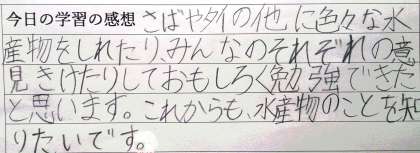 今日の学習の感想 さばやタイの他に色々な水
産物をしれたり、みんなのそれぞれの意
見きけたりしておもしろく勉強できた
と思います。これからも、水産物のことを知
りたいです。